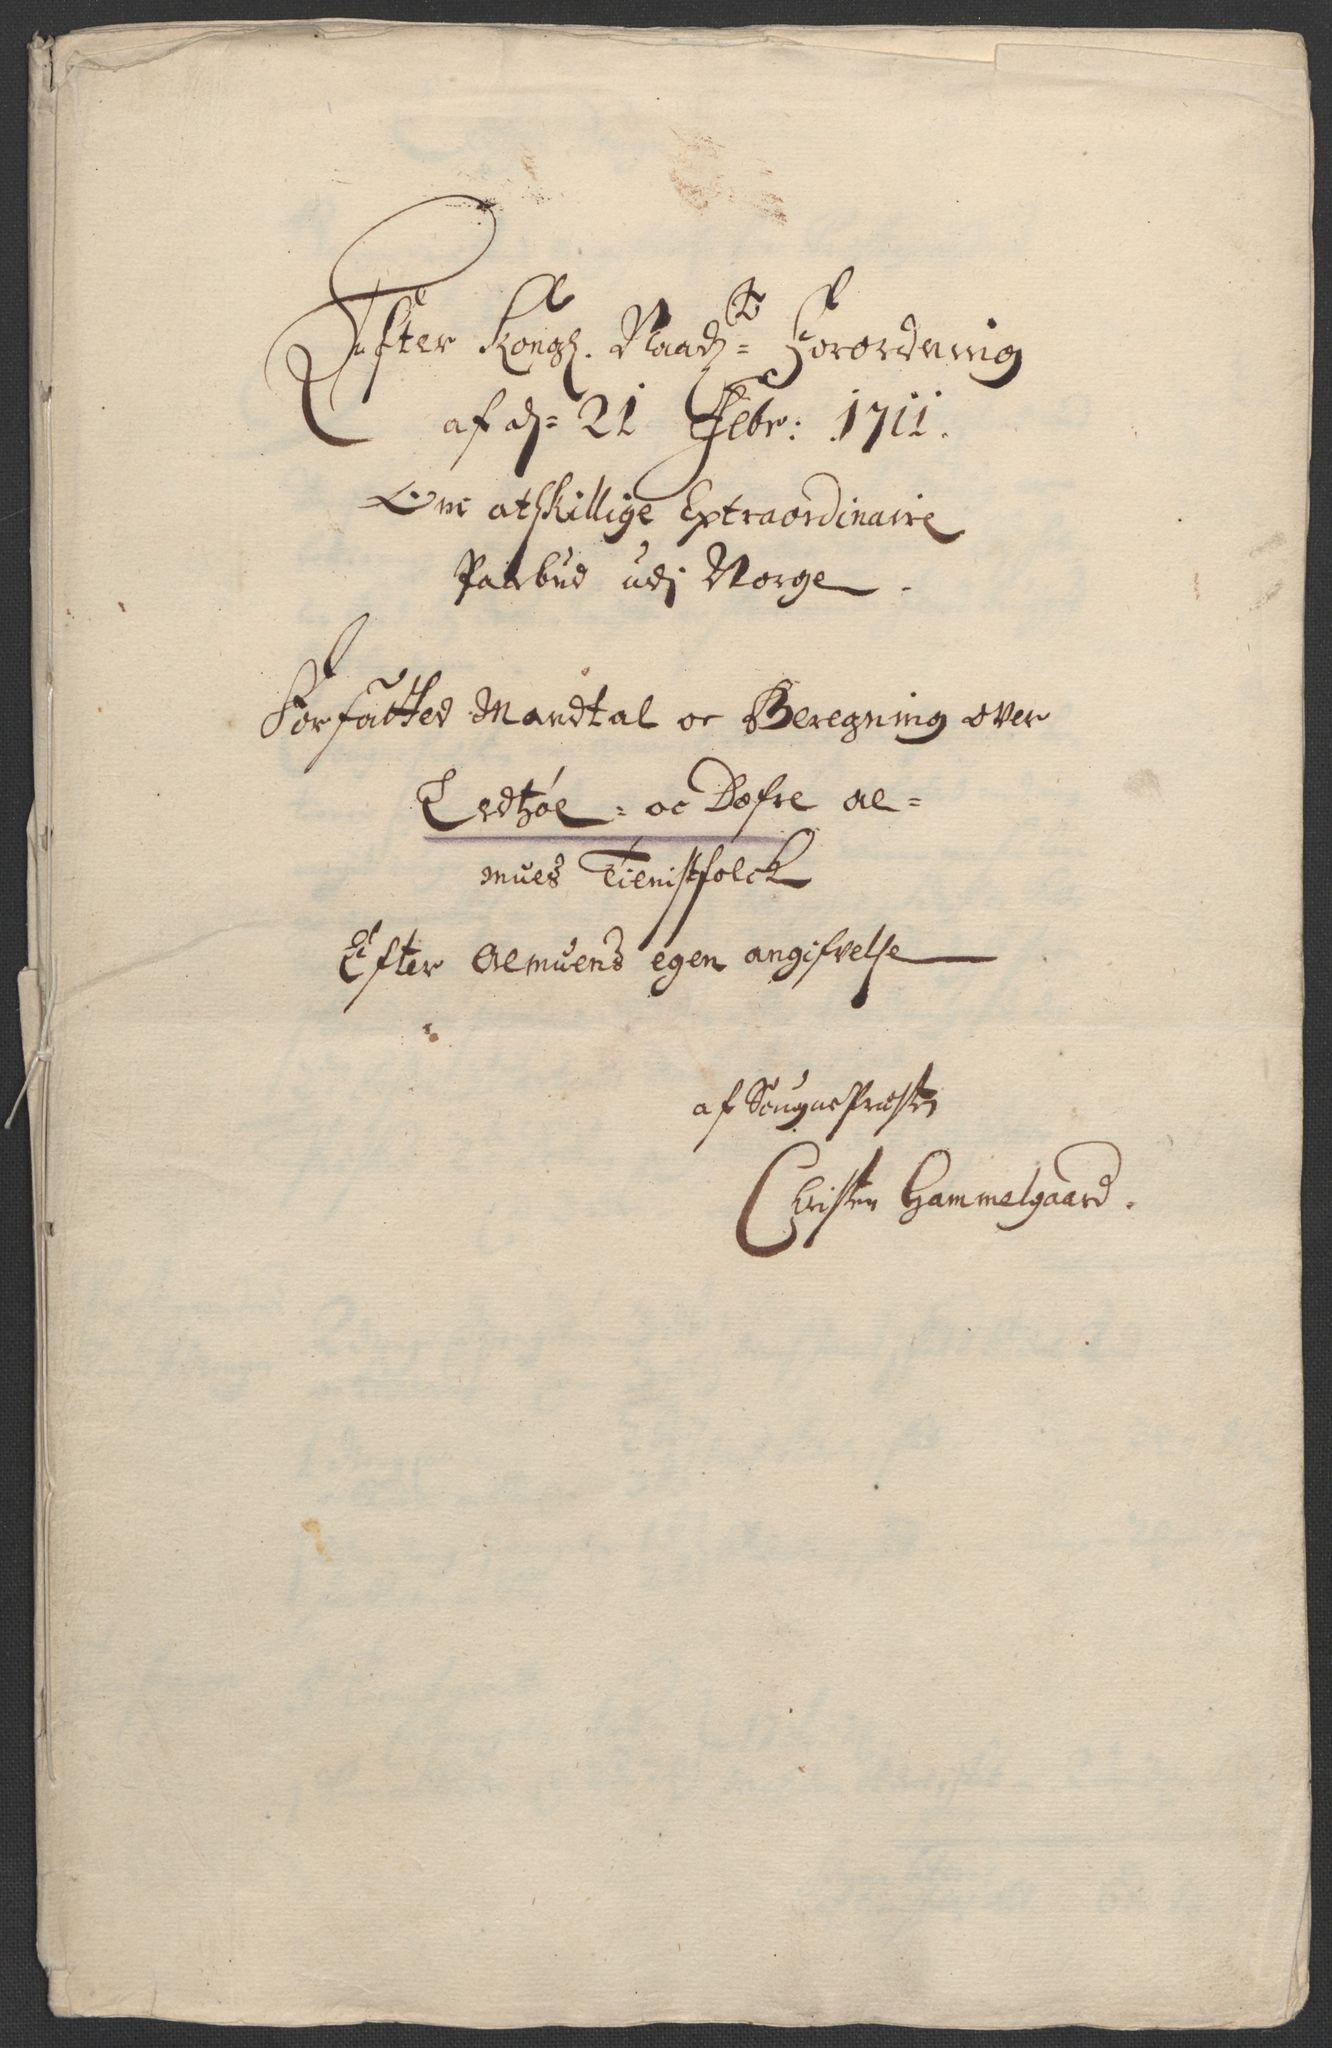 Efter Kongl. Naadste Forordning
af d= 21 Febr: 1711.
Om atskillige Extraordinaire
Paabud udj Norge.
Forfatted Mandtal oc Beregning over
Ledhøl = oc Døfre al=
mues Tienistfolck
Efter Almuens egen angifvelse
af SougnePræsten
Christen Hammelgaard.